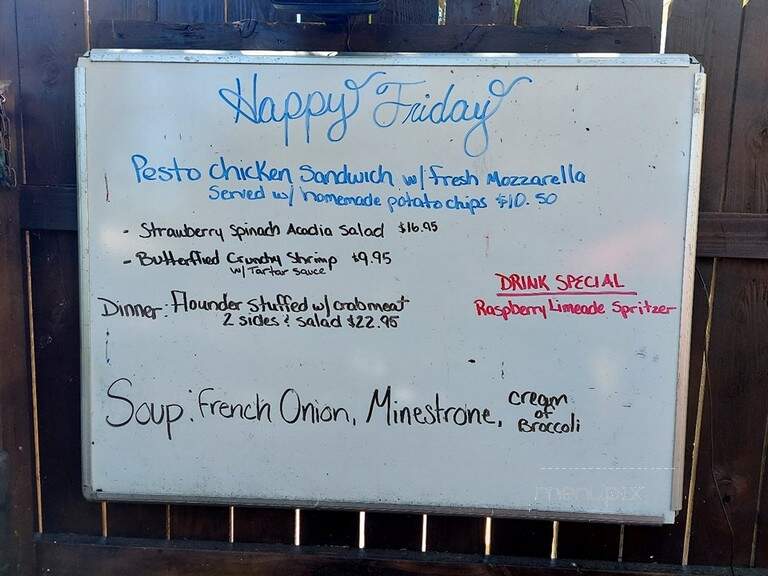 Happy Friday
Pesto Chicken Sandwich w/ fresh Mozzarella
Served w/ homemade potato chips $10.50
- Strawberry Spinach Acadia Salad $16.95
- Butterflied Crunchy Shrimp $9.95
w/ Tartar sauce
DRINK SPECIAL
Raspberry Limeade Spritzer
Dinner: Flounder Stuffed w/ crabmeat
2 sides & salad $22.95
Soup: French Onion, Minestrone, cream of Broccoli
menupix